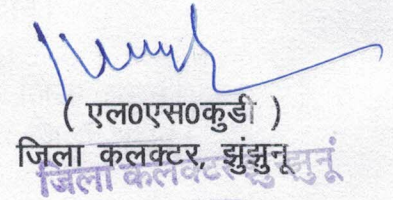 ( एल0एस0कुडी )
जिला कलक्टर, झुंझुनू
जिला कलक्टर झुंझुनूं